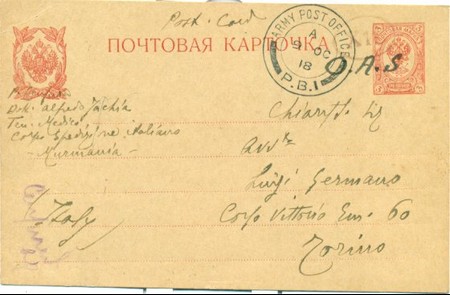 Post-Card
ПОЧТОВАЯ КАРТОЧКА
ARMY POST OFFICE
A
9 OC
18
P.B.1
O.A.S
Dr. Alfredo Jachia
Ten. Medico
Corpo Spedizione Italiano
- Murmania -
Italy
Avv
Luigi Germano
Corso Vittorio Em. 60
Torino